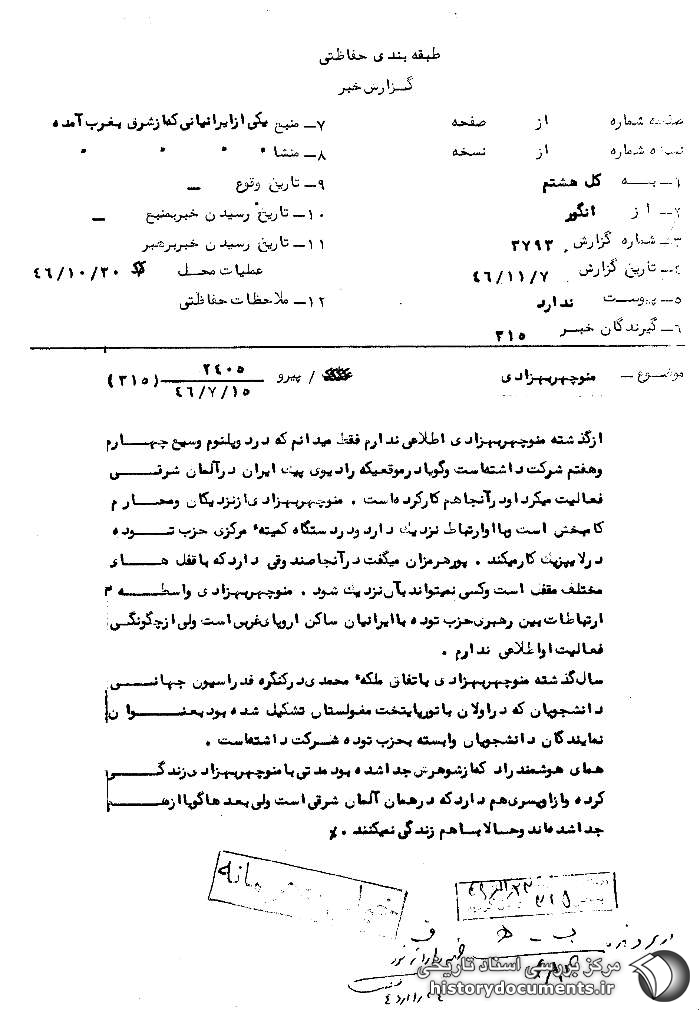 طبقه بندی حفاظتی
گزارش خبر
صفحه شماره از صفحه
نسخه شماره از نسخه
۱ـ به کل هشتم
۲ـ از انگور
۳ـ شماره گزارش ۳۷۹۳
۴ـ تاریخ گزارش ۴۶/۱۱/۷
۵ـ پیوست ندارد
۶ـ گیرندگان خبر ۳۱۵
۷ـ منبع یکی از ایرانیانی که از شرق بغرب آمده
۸ـ منشاء " " " "
۹ـ تاریخ وقوع ـ
۱۰ـ تاریخ رسیدن خبر بمنبع ـ
۱۱ـ تاریخ رسیدن خبر برهبر
عملیات محل ۴۶/۱۰/۳۰
۱۲ـ ملاحظات حفاظتی
موضوع ـ منوچهر بهزادی / پیرو ۲۴۰۵ (۳۱۵)
۴۶/۷/۱۵
از گذشته منوچهر بهزادی اطلاعی ندارم فقط میدانم که در دو پلنوم وسیع چهارم
و هفتم شرکت داشته است و گویا در موقعیکه رادیوی پیک ایران در آلمان شرقی
فعالیت میکرد او در آنجا هم کار کرده است . منوچهر بهزادی از نزدیکان و محارم
کامبخش است و با او ارتباط نزدیک دارد و در دستگاه کمیته مرکزی حزب توده
در لایپزیک کار میکند . پورهرمزان میگفت در آنجا صندوقی دارد که با قفل های
مختلف مقفل است و کسی نمیتواند بآن نزدیک شود . منوچهر بهزادی واسطه
ارتباطات بین رهبری حزب توده با ایرانیان ساکن اروپای غربی است ولی از چگونگی
فعالیت او اطلاعی ندارم .
سال گذشته منوچهر بهزادی باتفاق ملکه محمدی در کنگره فدراسیون جهانی
دانشجویان که در اولان باتور پایتخت مغولستان تشکیل شده بود بعنوان
نمایندگان دانشجویان وابسته بحزب توده شرکت داشته است .
همای هوشمند راد که از شوهرش جدا شده بود مدتی با منوچهر بهزادی زندگی
کرده و از او پسری هم دارد که در همان آلمان شرقی است ولی بعدها گویا از هم
جدا شده اند و حالا با هم زندگی نمیکنند .
۳۱۵
ب ـ ه ف
مرکز بررسی اسناد تاریخی
historydocuments.ir